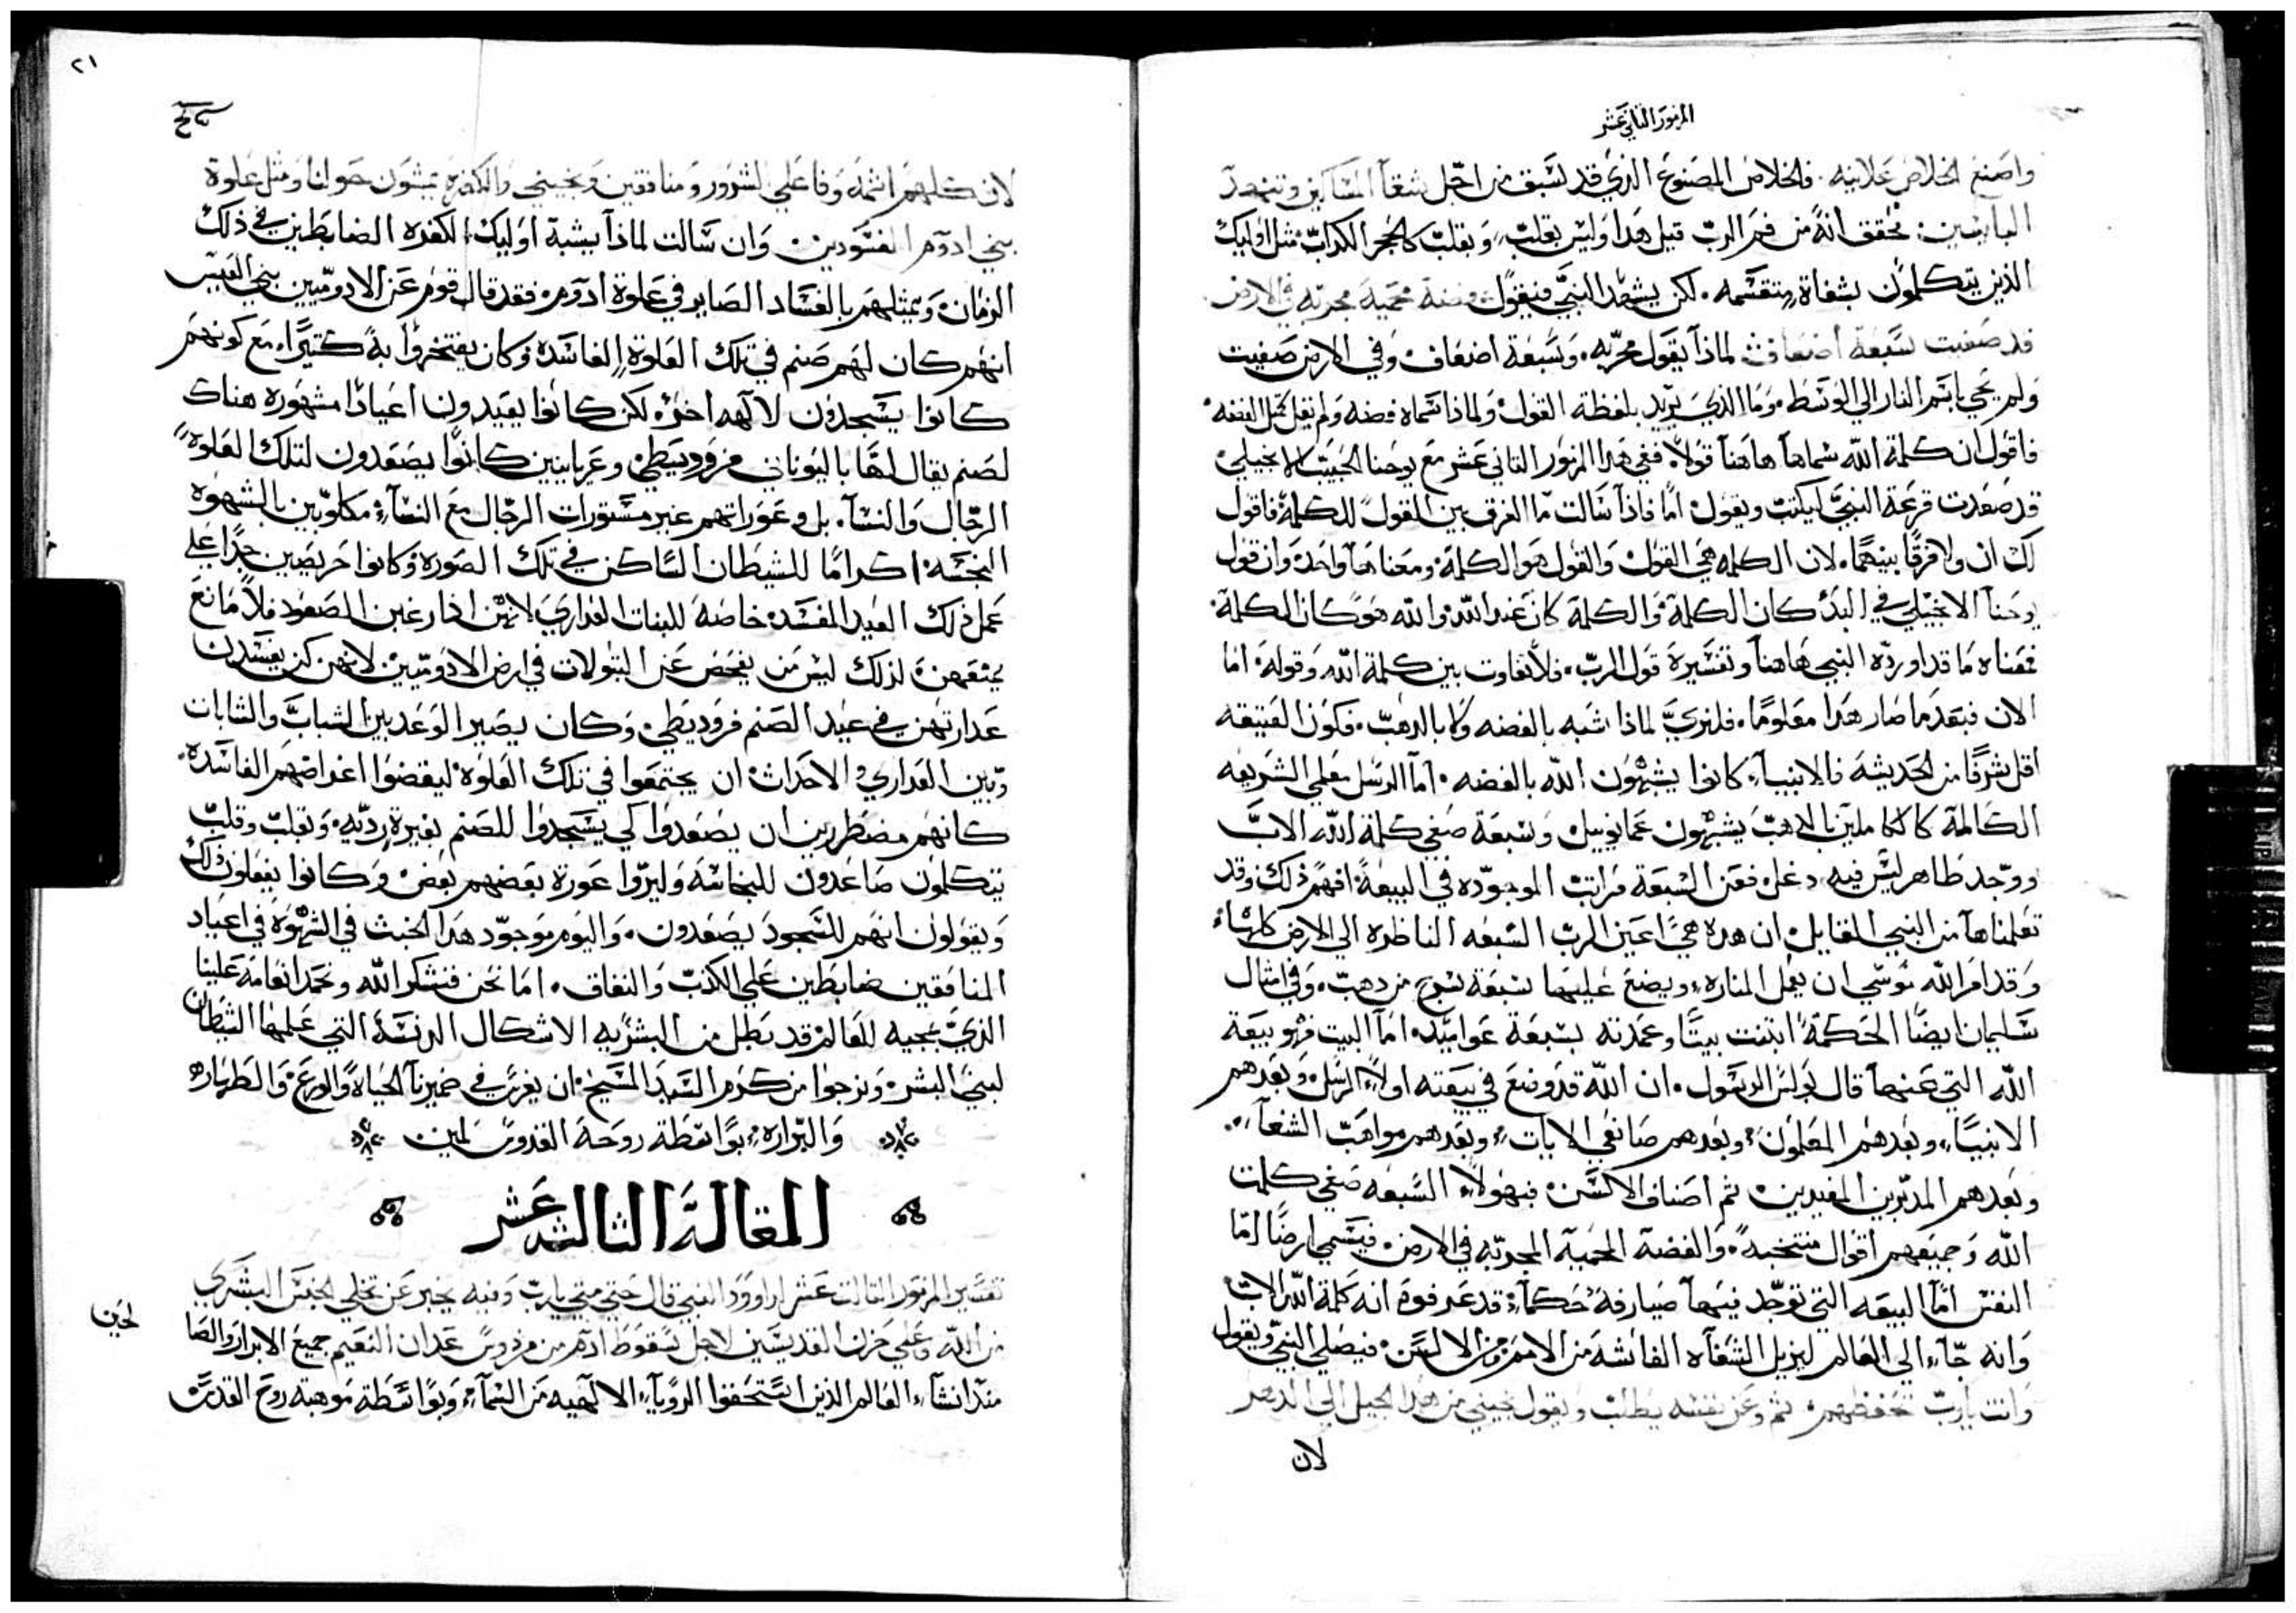 المزمور الثاني عشر
واصنع الخلاص علانيه. فالخلاص المصنوع الذي قد تسبق من اجل شقآ المساكين وتنهد
البايسين: محقق انه من فم الرب قيل هدا وليس بقلب، وبقلب كالحجر الكداب مثل اوليك
الذين يتكلمون بشفاة متقسمه. لكن يشهد النبي فيقول فضة محمية مجربه في الارض
قد صفيت سبعة اضعاف لماذا يقول مجربه. وسبعة اضعاف وفي الارض صفيت
ولم يجي باسم النار الي الوسط. وما الذي يريد بلفظة القول. ولماذا سماه فضه ولم يقل كمثل الفضه.
فاقول ان كلمة الله سماها هاهنا قولاً. ففي هدا المزمور التاني عشر مع يوحنا الحبيب الانجيلي
قد صعدت قرعة النبي ليكتب ويقول. اما فاذا سالت ما الفرق بين القول للكلمة. فاقول
لك ان ولا فرقًا بينهما. لان الكلمه هي القول والقول هو الكلمة. ومعناهما واحدة وان قول
يوحنا الانجيلي في البدء كان الكلمة والكلمة كان عند الله والله هو كان الكلمة.
فمعناه ما قد اورده النبي هاهنا وتفسيرة قول الرب. فلا تفاوت بين كلمة الله وقوله. اما
الان فبعد ما صار هدا معلومًا. فلنري لماذا اشبه بالفضه ولا بالدهب. فكون العتيقه
اقل شرفًا من الحديثه فالانبيآء كانوا يشبهون الله بالفضه. اما الرسل معلمي الشريعه
الكاملة كالكاملين بالدهب يشبهون عمانوييل وسبعة صفي كلمة الله الاب
ووجد طاهر ليس فيه دغل. فعن السبعة مراتب الموجوده في البيعة افهم ذلك. وقد
تعلمناها من النبي القايل ان هده هي اعين الرب السبعه الناظره الي الارض كلها
وقد امر الله موسي ان يعمل المناره، ويضع عليها سبعة سرج من دهب. وفي امثال
سليمان ايضًا الحكمة ابتنت بيتًا وعمدته بسبعة عواميد. اما البيت فهو بيعة
الله التي عنها قال بولس الرسول. ان الله قد وضع في بيعته اولاً الرسل، وبعدهم
الانبيآء، وبعدهم المعلمون، وبعدهم صانعي الايات، وبعدهم مواهب الشفآء.
وبعدهم المدبرين المفيدين. ثم اصناف الالسن. فبهولاء السبعه صفي كلمة
الله وجميعهم اقوال منتخبه. والفضة المحمية المجربه في الارض. فيسمي ارضًا اما
النفس اما البيعه التي توجد فيها صيارفة حكمآء. قد عرفوه انه كلمة الله الاب
وانه جآء الي العالم ليزيل الشفاه الغاشه من الامم ومن الالسن. فيصلي النبي ويقول
وانت يارب تحفظهم. ثم وعن نفسه يطلب ويقول نجيني من هدا الجيل الي الدهر
لان
٢١
لان كلهم اثمه وفاعلي الشرور ومنافقين ونجيني والكفره يمشون حولنا ومثل علوة
بني ادوم الفسودين. وان سالت لماذا يشبة اوليك الكفره الضابطين في ذلك
الزمان. ويمثلهم بالفساد الصاير في علوة ادوم. فقد قال قوم عن الادوميين بني العيس
انهم كان لهم صنم في تلك العلوة الفاسدة وكان يفتخروا به كتيرًا. مع كونهم
كانوا يسجدون لالهه اخر. لكن كانوا يعيدون اعيادًا مشهوره هناك
لصنم يقال لها باليوناني فروديطي. وعريانين كانوا يصعدون لتلك العلوة
الرجال والنسآ. بل وعوراتهم غير مستورات الرجال مع النسآء مكلوبين بالشهوه
النجسه. اكرامًا للشيطان الساكن في تلك الصوره وكانوا حريصين جدًا علي
عمل ذلك العيد المفسد. خاصة للبنات العداري لانهن اذا رغبن الصعود فلا مانع
يمنعهن. لذلك ليس من يفحص عن البتولات في ارض الادوميين لانهن كن يفسدن
عدارتهن في عيد الصنم فروديطي. وكان يصير الوعد بين الشباب والشابات
وبين العداري والاحداث. ان يجتمعوا في تلك العلوة ليقضوا اغراضهم الفاسدة.
كانهم مضطرين ان يصعدوا لكي يسجدوا للصنم بغيرة ردّيه. وبقلب وقلب
يتكلمون صاعدون للنجاسه وليروا عورة بعضهم بعض. وكانوا يفعلون ذلك
ويقولون انهم للسجود يصعدون. واليوم موجود هدا الخبث في الشهوة في اعياد
المنافقين ضابطين علي الكذب والنفاق. اما نحن فنشكر الله ونحمد انعامه علينا
الذي بمجيه للعالم قد بطل من البشريه الاشكال الدنسة التي علمها الشيطان
لبني البشر. ونرجوا من كرم السيد المسيح. ان يغرس في ضميرنا الحياة والورع والطهاره
والبراره، بواسطة روحة القدوس امين
المقالة الثالثه عشر
تفسير المزمور الثالت عشر لداوود النبي قال حتي متي يارب وفيه يخبر عن تخلي الجنس البشري
من الله وعلي حزن القديسين لاجل سقوط ادم من فردوس عدان النعيم جميع الابرار والصا
لحين
مند انشآء العالم الذين استحقوا الروياء الالهيه من السمآء، وبواسطة موهبته روح القدس